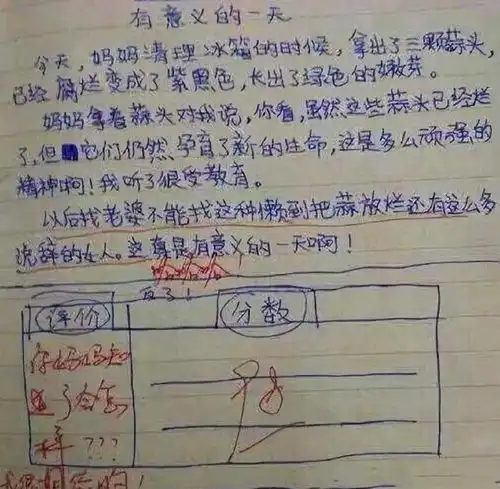 有意义的一天
今天，妈妈清理冰箱的时候，拿出了三颗蒜头，
已经腐烂变成了紫黑色，长出了绿色的嫩芽。
妈妈拿着蒜头对我说，你看，虽然这些蒜头已经烂
了，但它们仍然孕育了新的生命，这是多么顽强的
精神啊！我听了很受教育。
以后找老婆不能找这种懒到把蒜放烂还有这么多
说辞的女人。这真是有意义的一天啊！
反了！
评价
分数
你妈妈知
道了会怎
样???